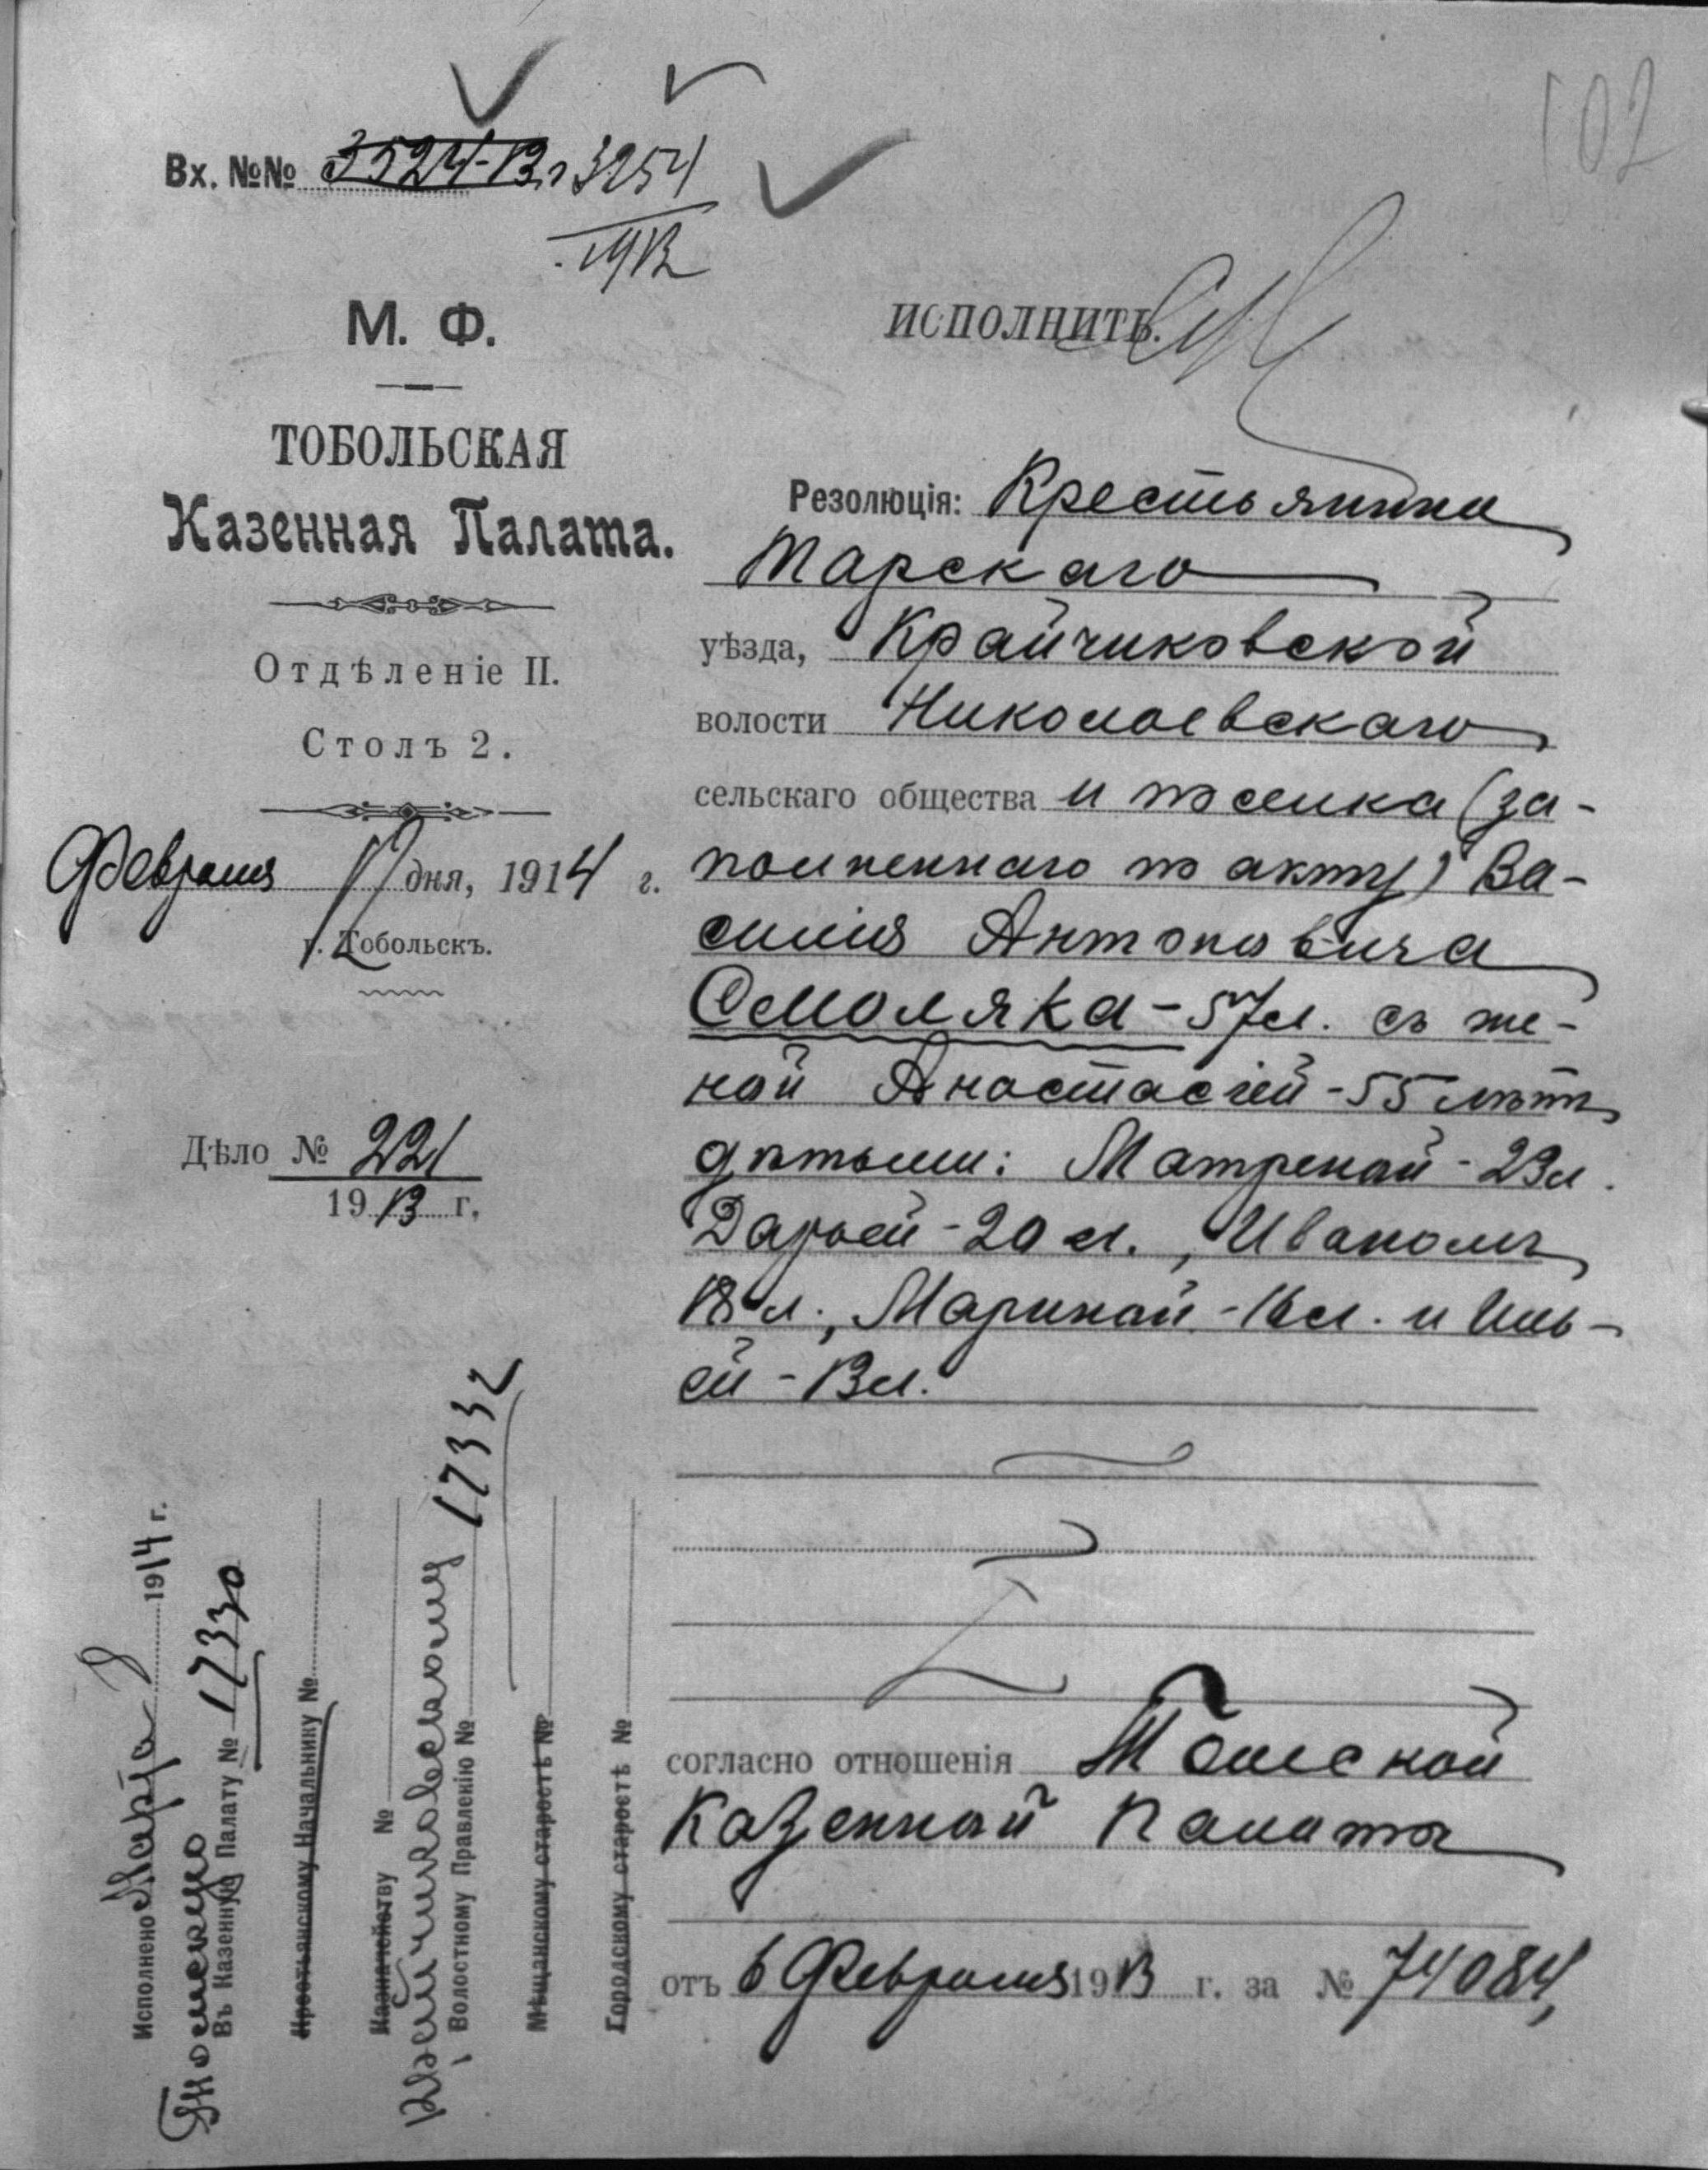 102
Вх. №№ 3524-13 г 3254
1913
М. Ф.
ТОБОЛЬСКАЯ
Казенная Палата.
Отдѣленіе II.
Столъ 2.
Февраля 17 дня, 1914 г.
г. Тобольскъ.
Дѣло № 221
1913 г.
ИСПОЛНИТЬ.
Резолюція: Крестьянина
Тарскаго
уѣзда, Крайчиковской
волости Николаевскаго
сельскаго общества и поселка (за-
полненнаго по акту) Ва-
силія Антоновича
Смоляка - 57 л. съ же-
ной Анастасіей - 55 лѣтъ
дѣтьми: Матреной - 23 л.
Дарьей - 20 л., Иваномъ
18 л., Мариной - 16 л. и Иль-
ей - 13 л.
согласно отношенія Томской
Казенной Палаты
отъ 6 Февраля 1913 г. за № 74084,
Исполнено Марта 8 1914 г.
Томскую
Въ Казенную Палату № 17330
Крестьянскому Начальнику №
Казначейству №
Крайчиковскому 17332
Волостному Правленію №
Мѣщанскому старостѣ №
Городскому старостѣ №